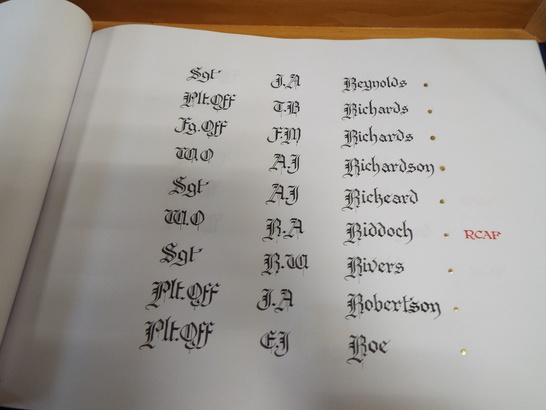 Sgt J.A Reynolds
Plt.Off T.B Richards
Fg.Off F.M Richards
W.O A.J Richardson
Sgt A.J Rickeard
W.O R.A Riddoch RCAF
Sgt R.W Rivers
Plt.Off J.A Robertson
Plt.Off E.J Roe